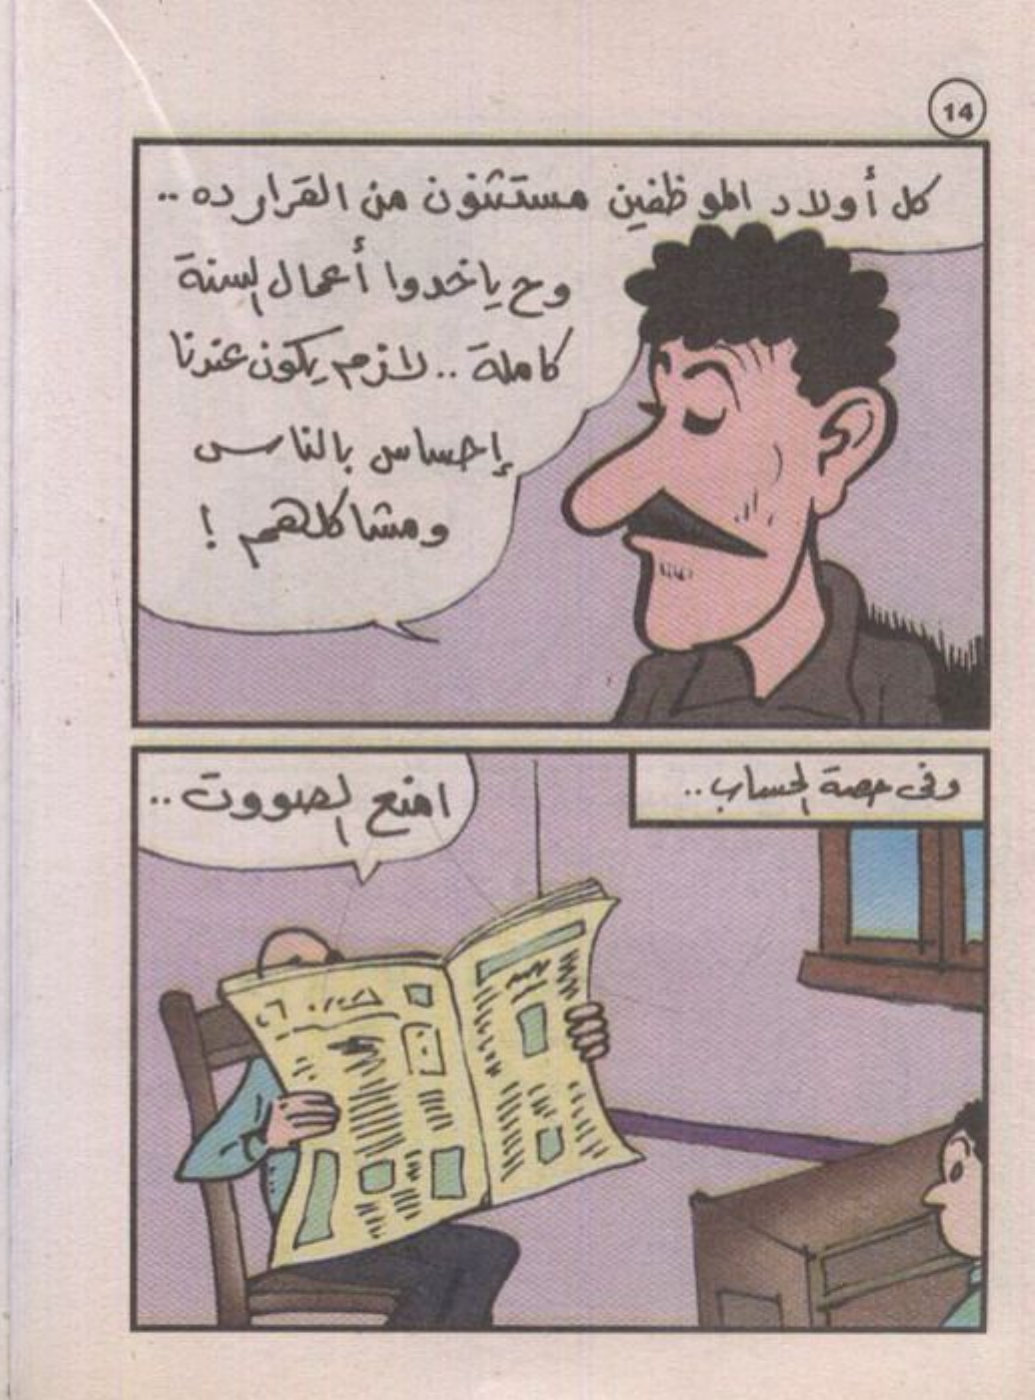 14
كل أولاد الموظفين مستثنون من القرار ده ..
وح ياخدوا أعمال السنة
كاملة .. لازم يكون عندنا
إحساس بالناس
ومشاكلهم !
وفى حصة الحساب ..
امنع الصووت ..